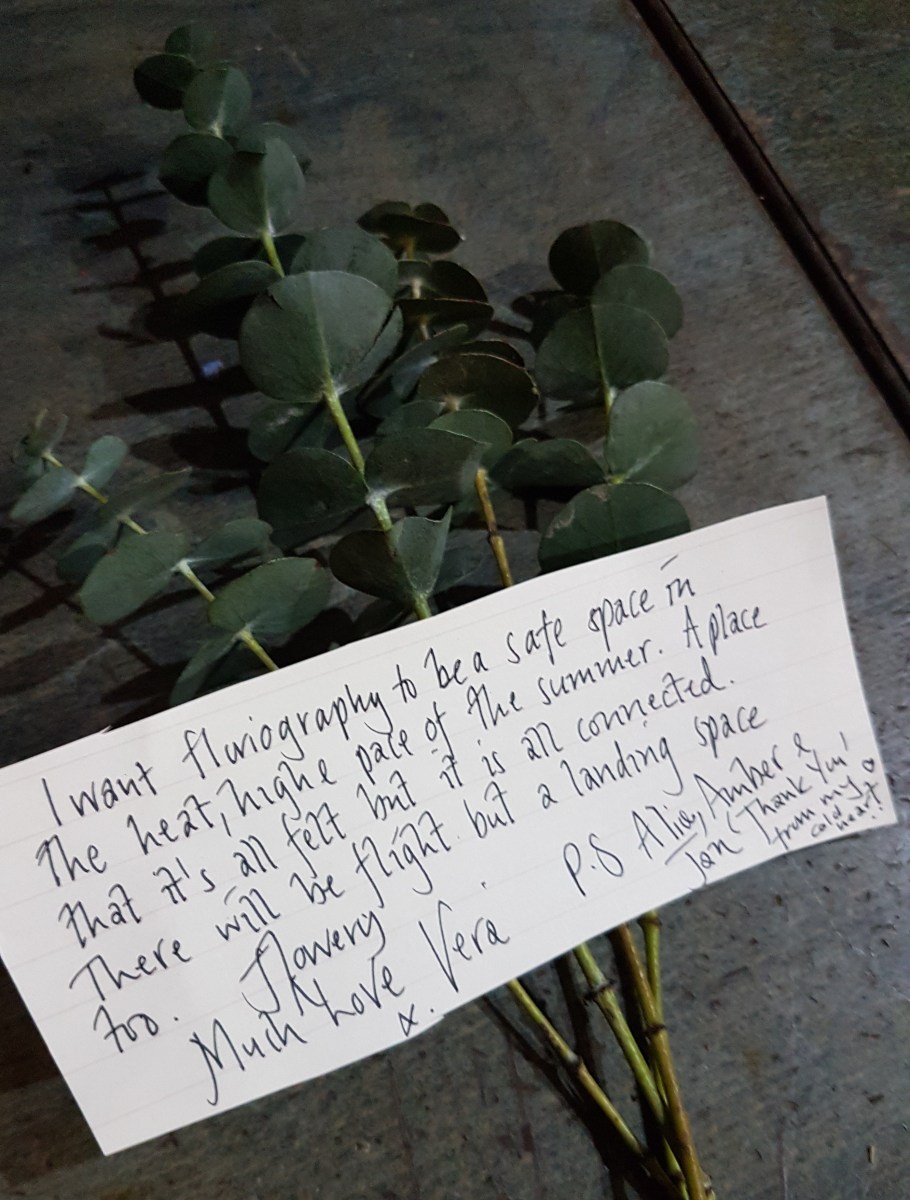 I want fluriography to be a safe space in
the heat, highe pace of the summer. A place
that it's all felt but it is all connected.
There will be flight but a landing space
too. Flowery
Much Love Vera
x.
P.S Alia, Amber &
Jan (Thank You!
from my
cold
heart!